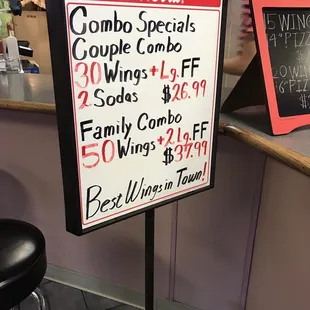 Combo Specials
Couple Combo
30 Wings + Lg. FF
2 Sodas $26.99
Family Combo
50 Wings + 2 Lg. FF
$37.99
Best Wings in Town!
5 WING
PIZZ
WING
PIZZ